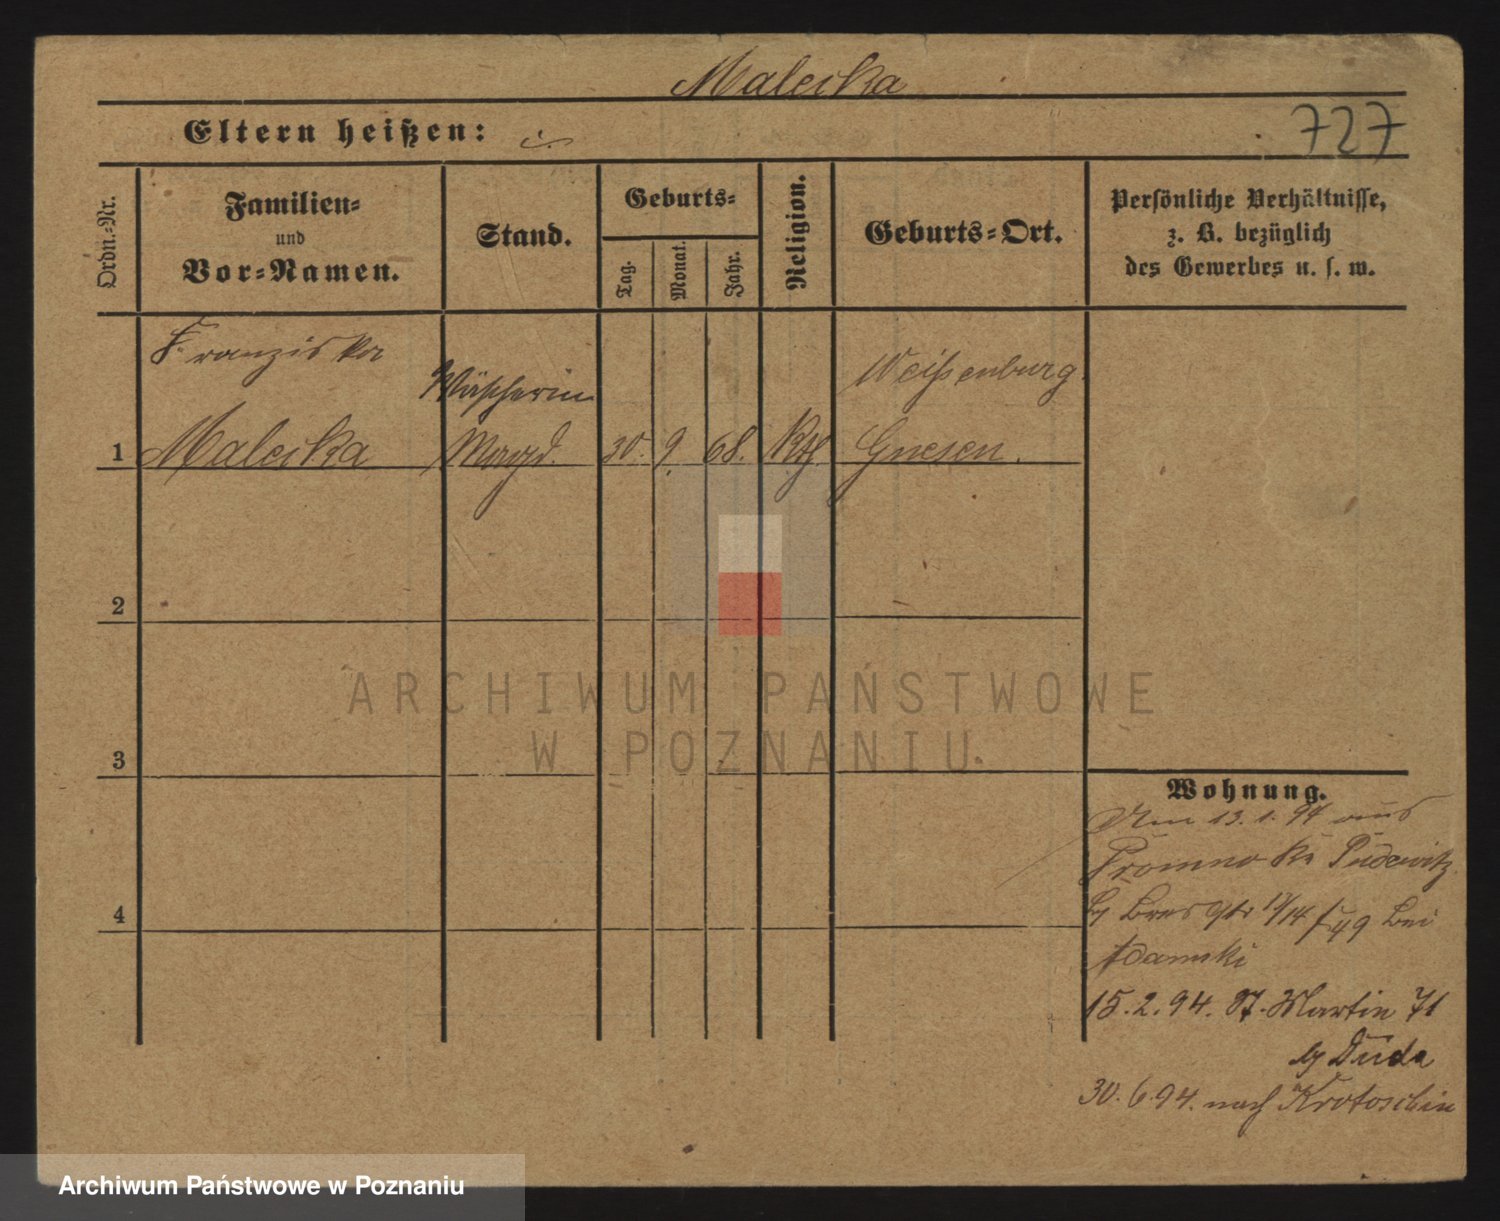 Malecka
Eltern heißen:
727
Ordn.-Nr.
Familien-
und
Vor-Namen.
Stand.
Geburts-
Tag.
Monat.
Jahr.
Religion.
Geburts-Ort.
Persönliche Verhältnisse,
z. B. bezüglich
des Gewerbes u. s. w.
Franziska
Wäscherin
Weißenburg
1 Malecka Magd. 30. 9. 68. Kth Gnesen.
2
3
4
Wohnung.
Am 13.1.94 aus
Promno Kr Pudewitz
49 bei
Adamski
15.2.94. St. Martin 71
by Duda
30.6.94. nach Krotoschin
ARCHIWUM PAŃSTWOWE
W POZNANIU
Archiwum Państwowe w Poznaniu